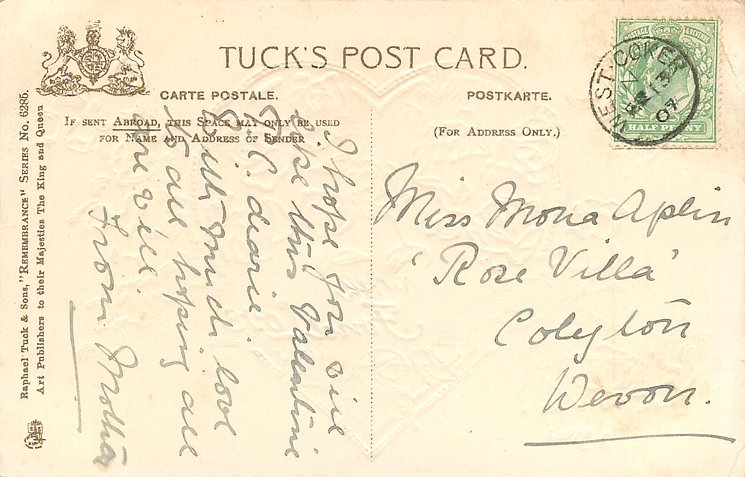 TUCK'S POST CARD.
CARTE POSTALE.
POSTKARTE.
IF SENT ABROAD, THIS SPACE MAY ONLY BE USED
FOR NAME AND ADDRESS OF SENDER
(FOR ADDRESS ONLY.)
Raphael Tuck & Sons, "REMEMBRANCE" SERIES No. 6285.
Art Publishers to their Majesties The King and Queen
WEST-COKER
13
07
HALF PENNY
I hope you will
like this Valentine
P.C. dearie.
With much love
to all hoping all
are well.
From Mother
Miss Mona Aplin
'Rose Villa'
Colyton
Devon.